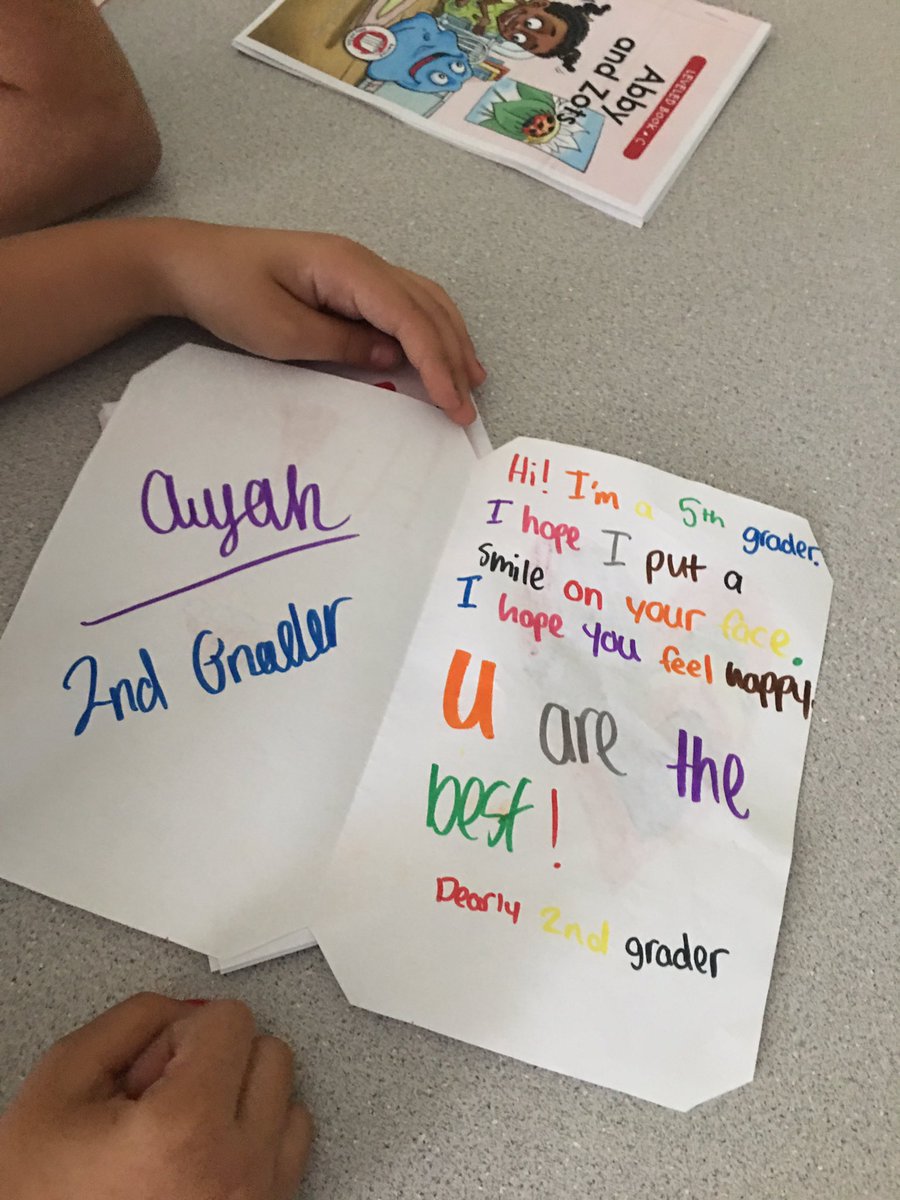 LEVELED BOOK • C
Abby
and Zots
auyah
2nd Grader
Hi! I'm a 5th grader.
I hope I put a
smile on your face.
I hope you feel happy.
U are the
best!
Dearly 2nd grader